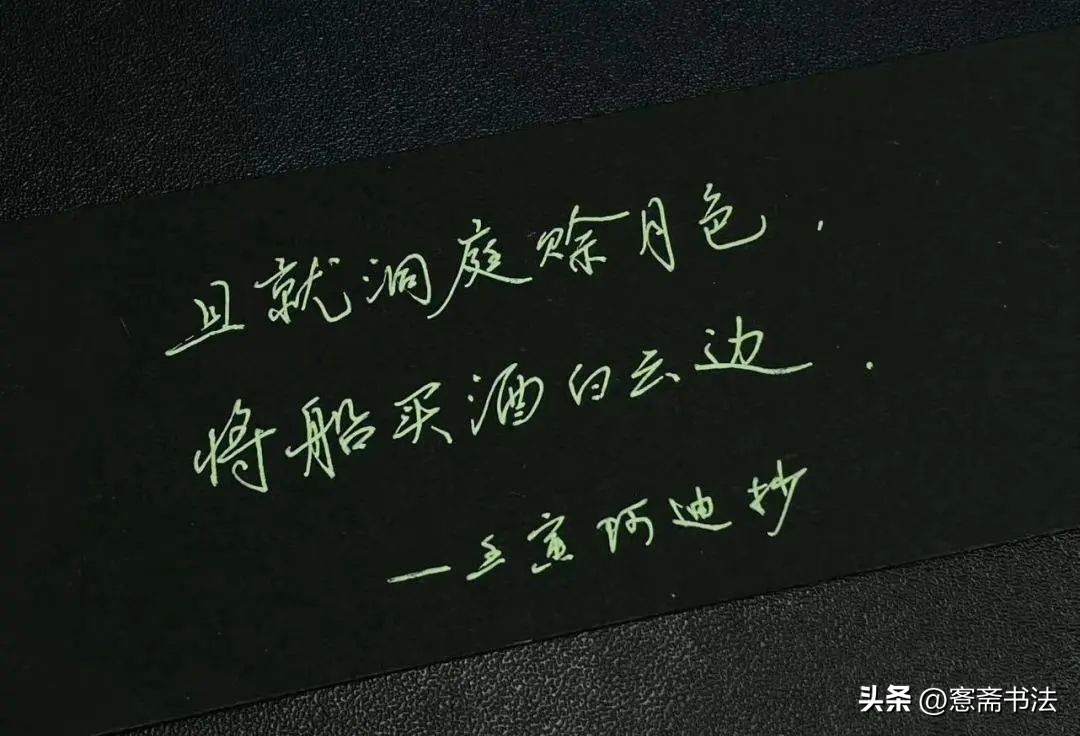 且就洞庭赊月色，
将船买酒白云边.
—壬寅阿迪抄
头条 @窓斋书法